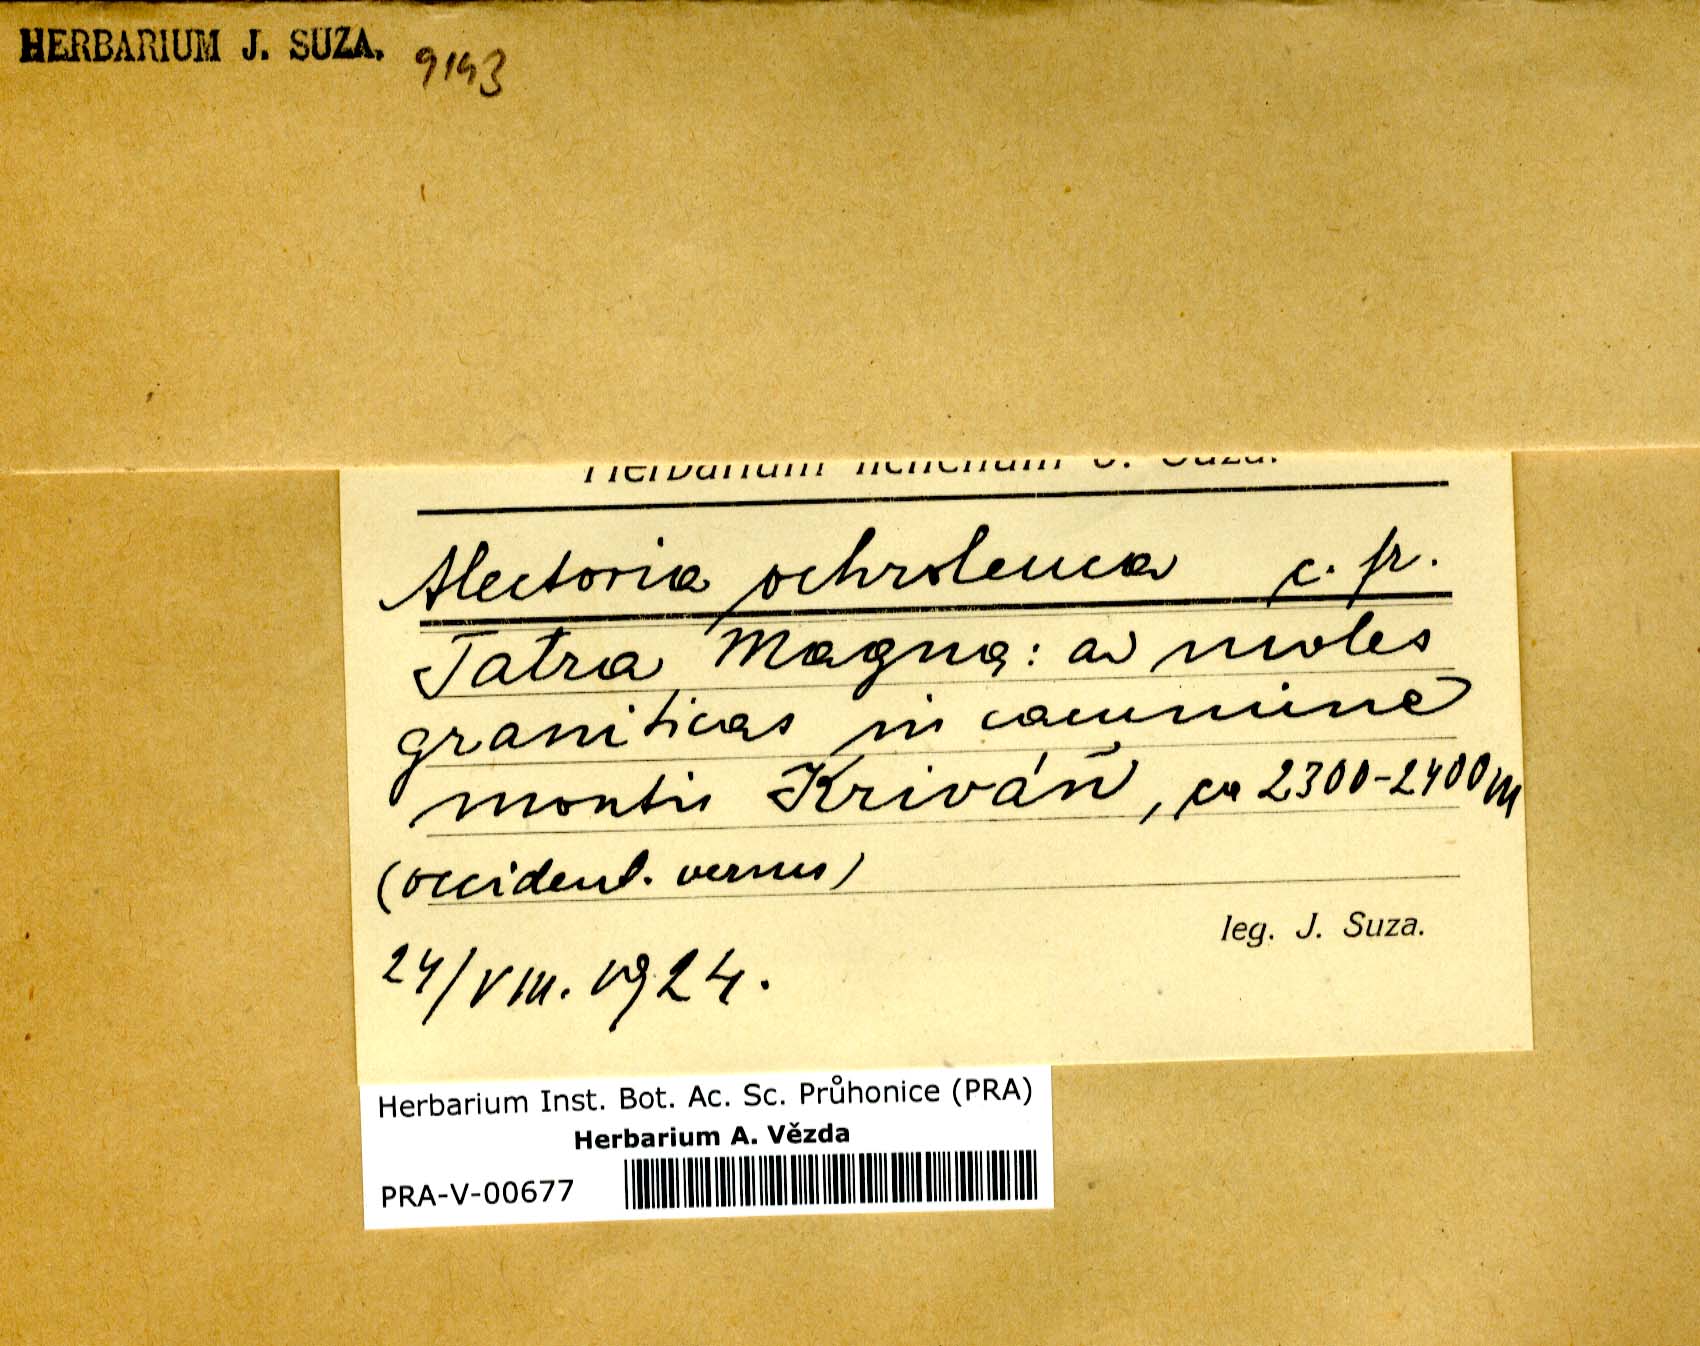 HERBARIUM J. SUZA. 9193
Herbarium lichenum J. Suza.
Alectoria ochroleuca c. fr.
Tatra Magna: ad moles
graniticas in cacumine
montis Kriváň, ca 2300-2400 m
(occident. versus)
leg. J. Suza.
24/VIII. 1924.
Herbarium Inst. Bot. Ac. Sc. Průhonice (PRA)
Herbarium A. Vězda
PRA-V-00677